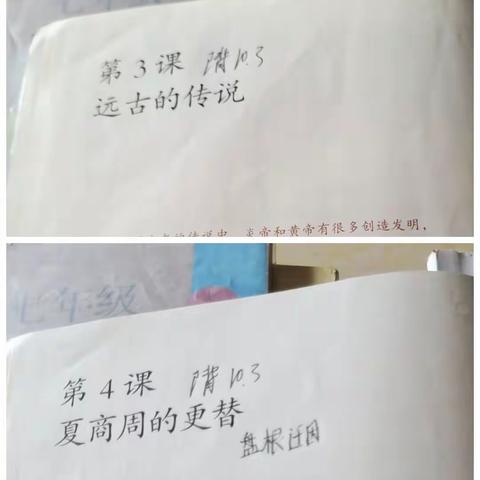 第 3 课 背10.3
远古的传说
传说中，炎帝和黄帝有很多创造发明，
七年级
第 4 课 背10.3
夏商周的更替
盘根迁因